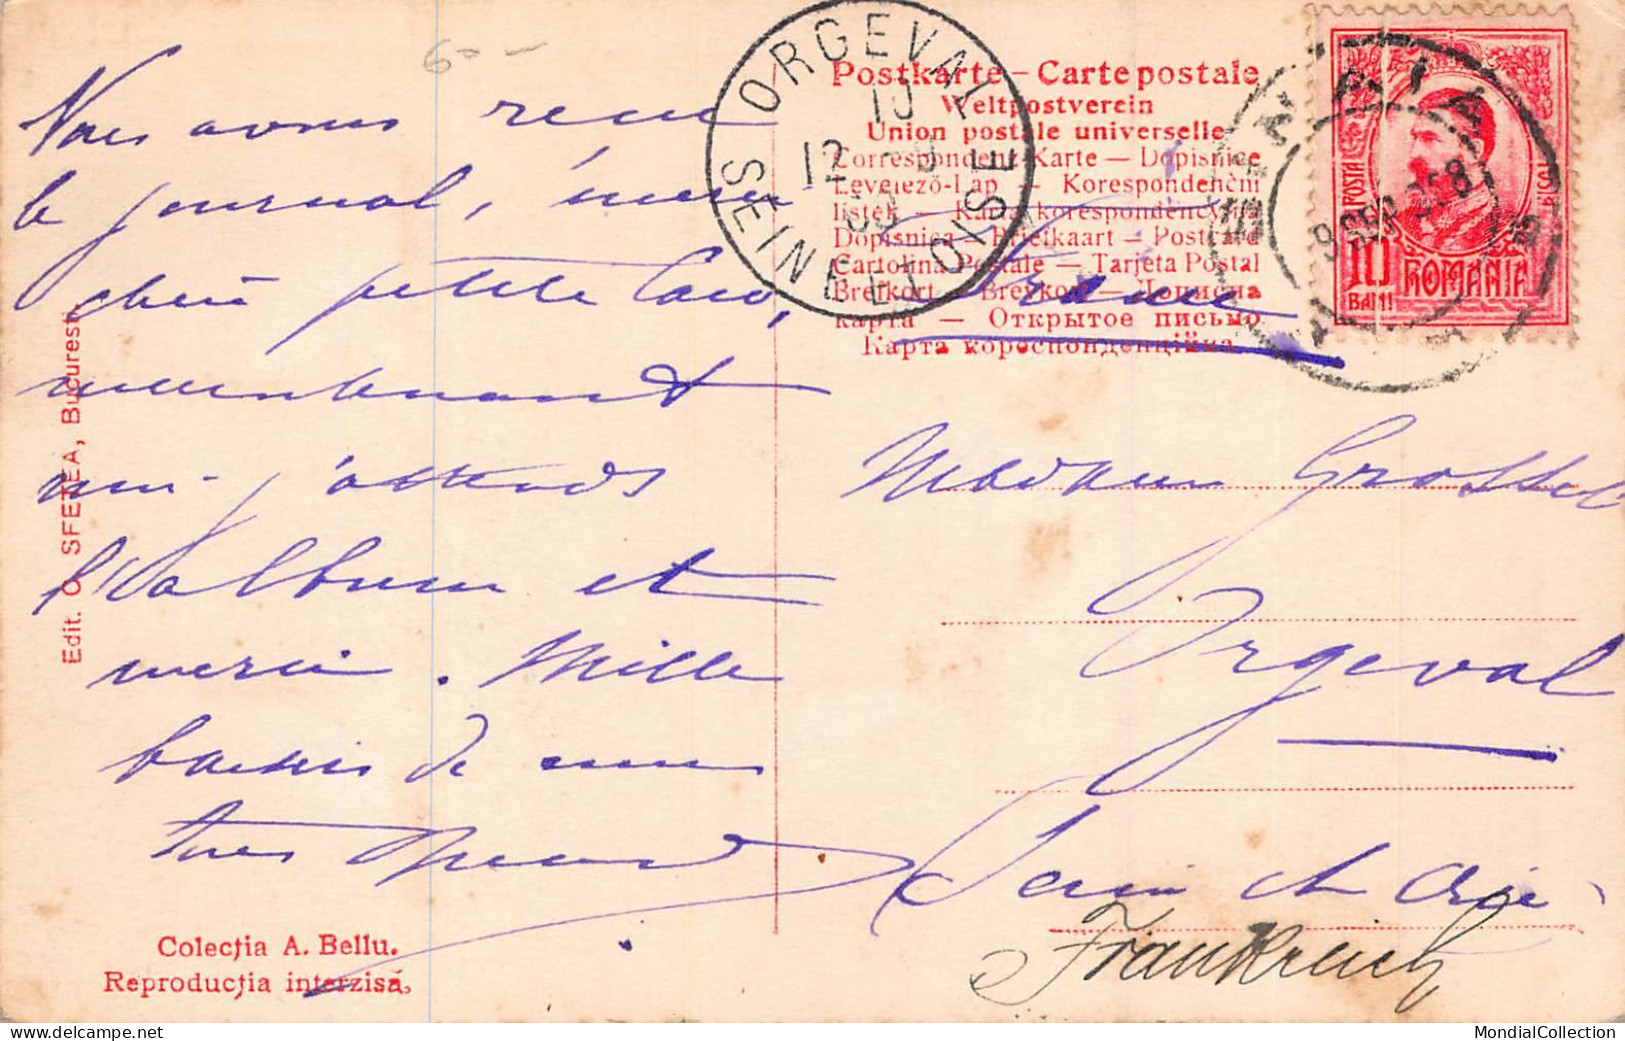 60 –
Nous avons reçu
le journal, merci
chère petite Caro,
maintenant
j'attends
l'album et
merci. Mille
baisers de
Edit. O. SFETEA, Bucuresti.
Colecția A. Bellu.
Reproducția interzisă.
ORGEVAL
10
12 -9
09
SEINE ET OISE
Postkarte – Carte postale
Weltpostverein
Union postale universelle
Correspondenz-Karte — Dopisnice
Levelező-Lap — Korespondenční
listek — Karta korespondencyjna
Dopisnica — Briefkaart — Postcard
Cartolina Postale — Tarjeta Postal
Brefkort — Brevkort — Дописна
карта — Открытое письмо
Карта кореспонденційна.
France
POSTA
10
BANI
ROMANIA
SINAIA
9 SEP 908
Madame Grossel
Orgeval
Seine et Oise
Frankreich
MondialCollection